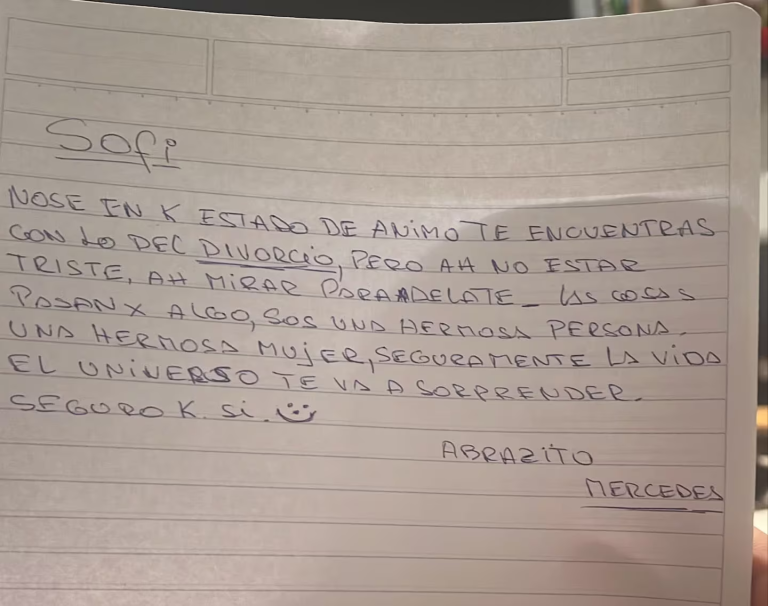 Sofi
NOSE EN K ESTADO DE ANIMO TE ENCUENTRAS
CON LO DEL DIVORCIO, PERO AH NO ESTAR
TRISTE, AH MIRAR PARA ADELATE_ LAS COSAS
PASAN X ALGO, SOS UNA HERMOSA PERSONA.
UNA HERMOSA MUJER, SEGURAMENTE LA VIDA
EL UNIVERSO TE VA A SORPRENDER.
SEGURO K. Si. :)
ABRAZITO
MERCEDES